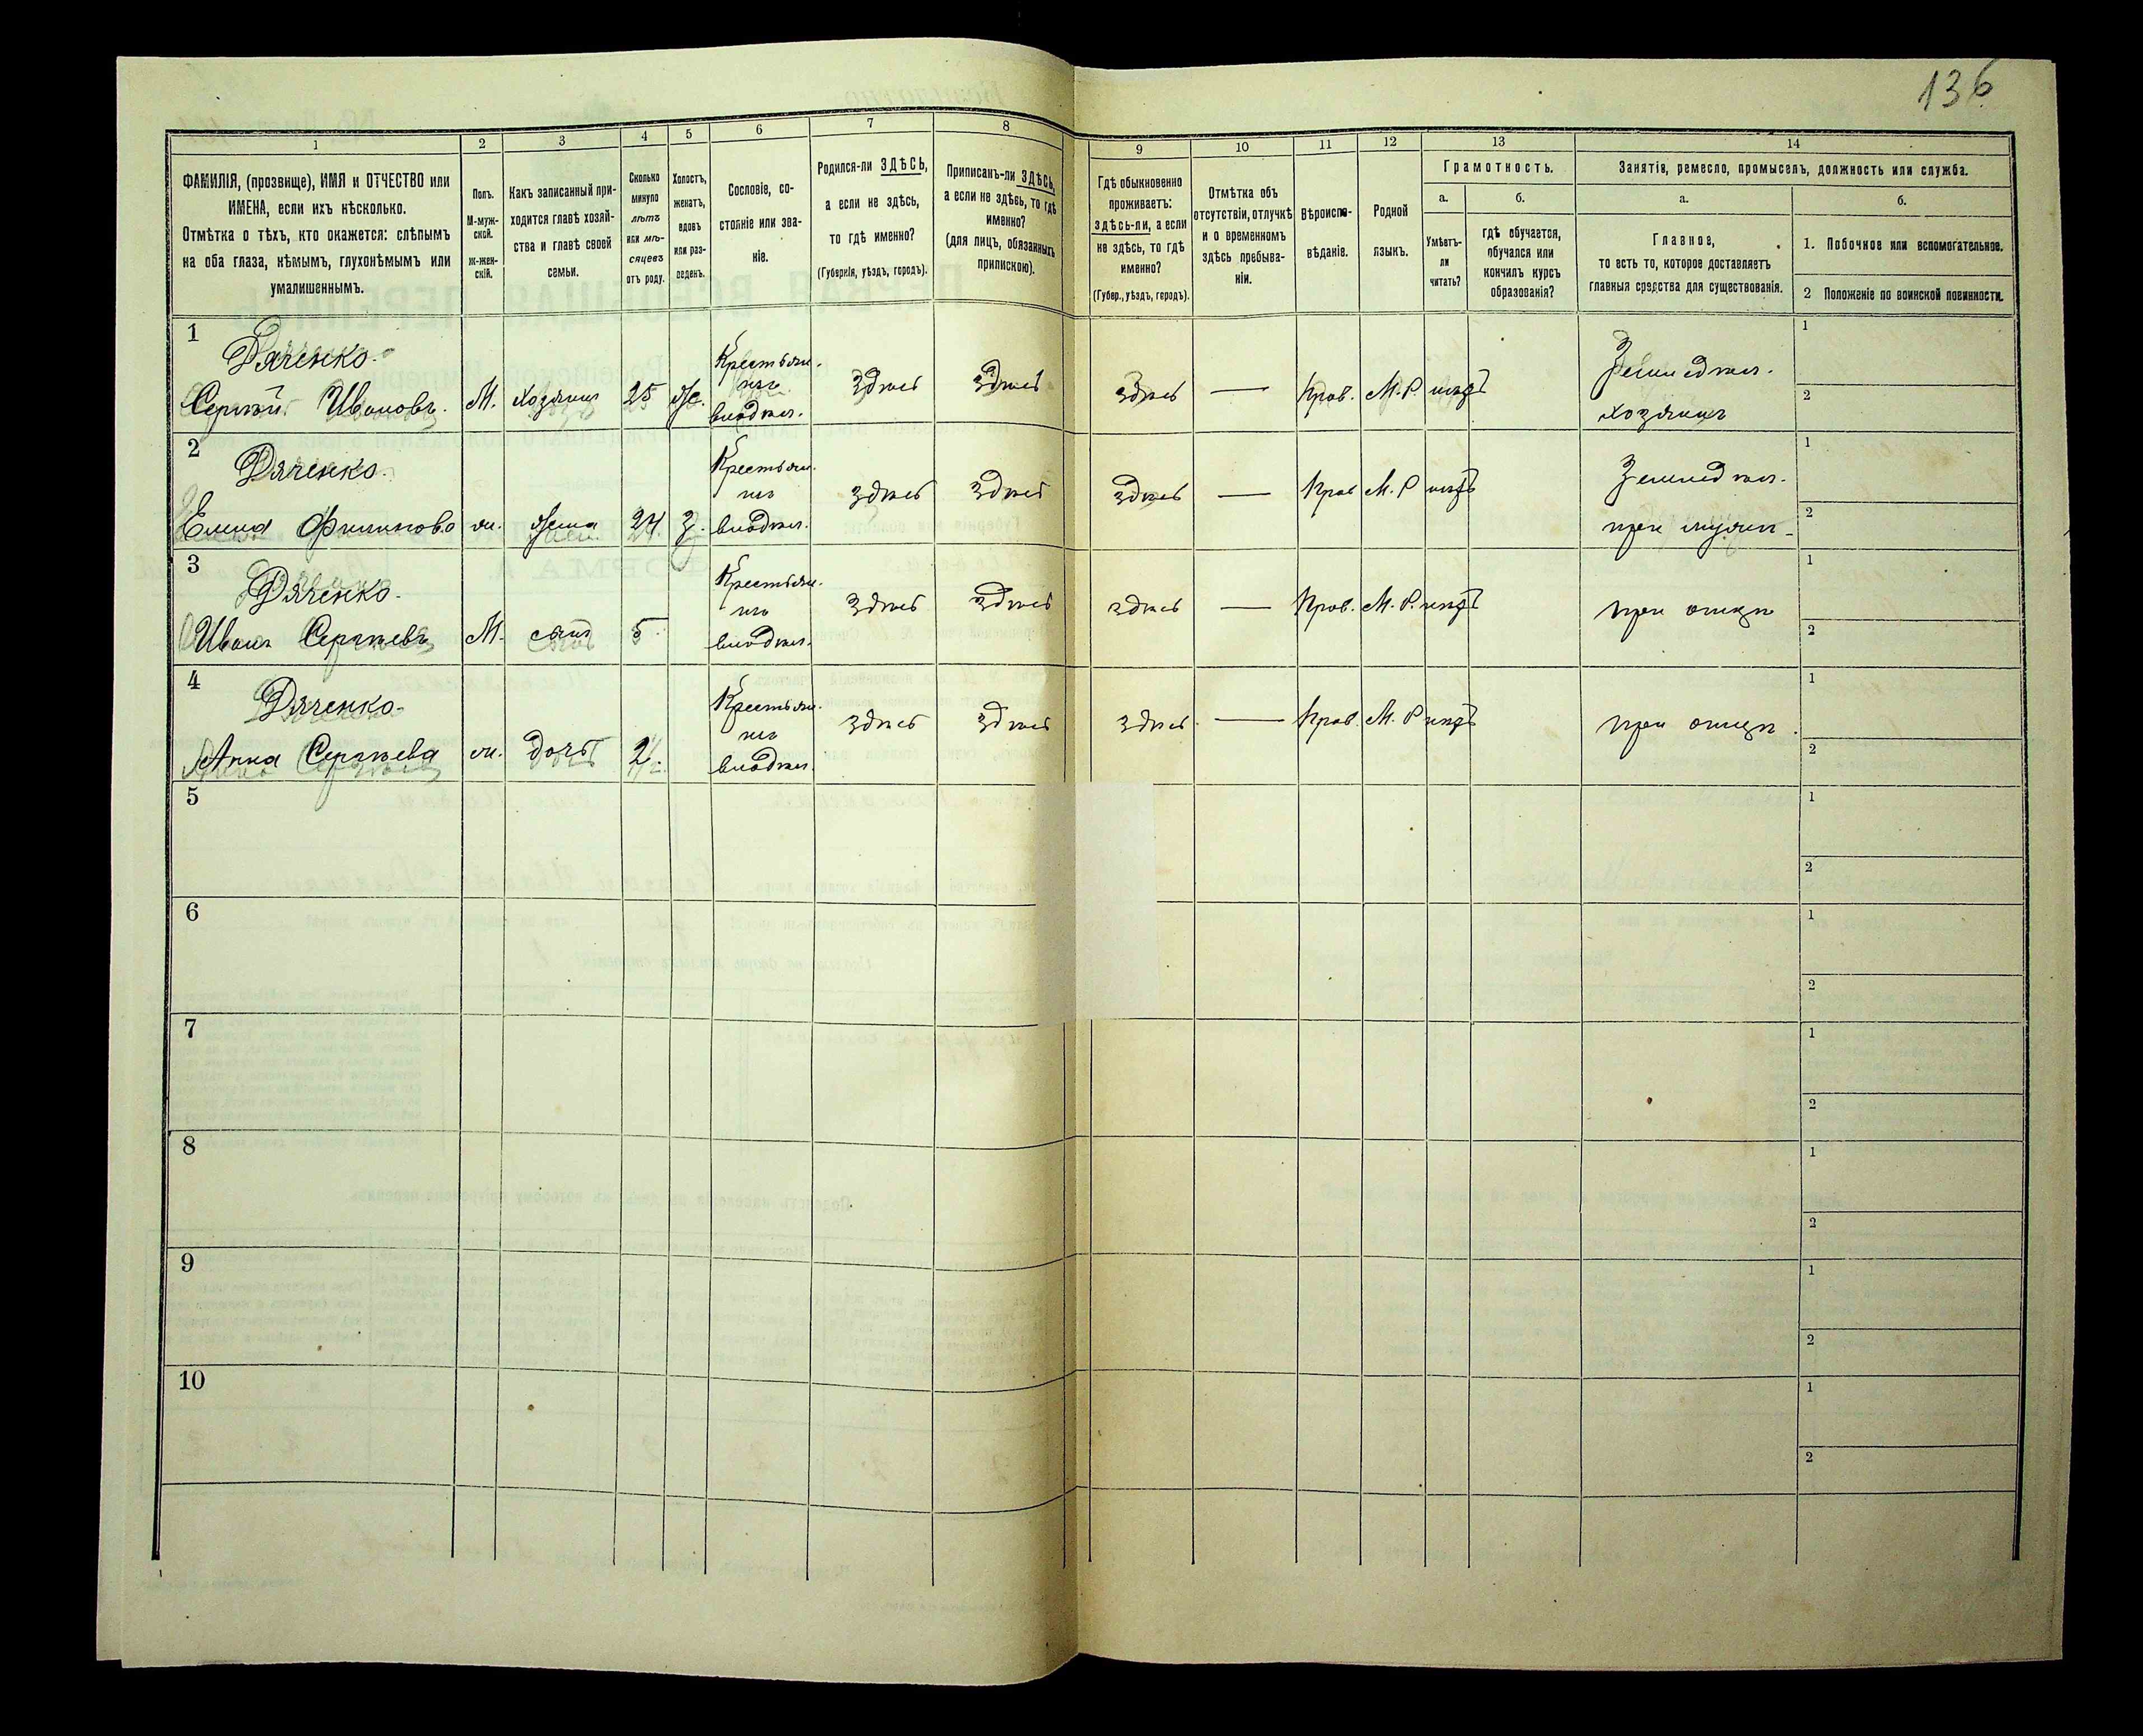 136
1
2
3
4
5
6
7
8
9
10
11
12
13
14
ФАМИЛІЯ, (прозвище), ИМЯ и ОТЧЕСТВО или
ИМЕНА, если ихъ нѣсколько.
Отмѣтка о тѣхъ, кто окажется: слѣпымъ
на оба глаза, нѣмымъ, глухонѣмымъ или
умалишеннымъ.
Полъ.
М-муж-
ской.
Ж-жен-
скій.
Какъ записанный при-
ходится главѣ хозяй-
ства и главѣ своей
семьи.
Сколько
минуло
лѣтъ
или мѣ-
сяцевъ
отъ роду.
Холостъ,
женатъ,
вдовъ
или раз-
веденъ.
Сословіе, со-
стояніе или зва-
ніе.
Родился-ли ЗДѢСЬ,
а если не здѣсь,
то гдѣ именно?
(Губернія, уѣздъ, городъ).
Приписанъ-ли ЗДѢСЬ,
а если не здѣсь, то гдѣ
именно?
(для лицъ, обязанныхъ
припискою).
Гдѣ обыкновенно
проживаетъ:
здѣсь-ли, а если
не здѣсь, то гдѣ
именно?
(Губер., уѣздъ, городъ).
Отмѣтка объ
отсутствіи, отлучкѣ
и о временномъ
здѣсь пребыва-
ніи.
Вѣроиспо-
вѣданіе.
Родной
языкъ.
Грамотность.
а.
б.
Умѣетъ-
ли
читать?
гдѣ обучается,
обучался или
кончилъ курсъ
образованія?
Занятія, ремесло, промыселъ, должность или служба.
а.
б.
Главное,
то есть то, которое доставляетъ
главныя средства для существованія.
1. Побочное или вспомогательное.
2 Положеніе по воинской повинности.
1
Дяченко.
Сергѣй Ивановъ. М. хозяинъ 25 Же.
Крестьян.
изъ
владѣл.
здѣсь здѣсь здѣсь — Прав. М.Р. нѣтъ
Земледѣл.
хозяинъ
1
2
2
Дяченко.
Елена Филипова ж. жена 24 З.
Крестьян.
изъ
владѣл.
здѣсь здѣсь здѣсь — Прав М.Р нѣтъ
Земледѣл.
при мужѣ
1
2
3
Дяченко.
Иванъ Сергѣевъ М. сынъ 5
Крестьян.
изъ
владѣл.
здѣсь здѣсь здѣсь — Прав. М.Р. нѣтъ
при отцѣ
1
2
4
Дяченко
Анна Сергѣева ж. дочь 2.
Крестьян.
изъ
владѣл.
здѣсь здѣсь здѣсь — Прав. М.Р нѣтъ
при отцѣ.
1
2
5
1
2
6
1
2
7
1
2
8
1
2
9
1
2
10
1
2